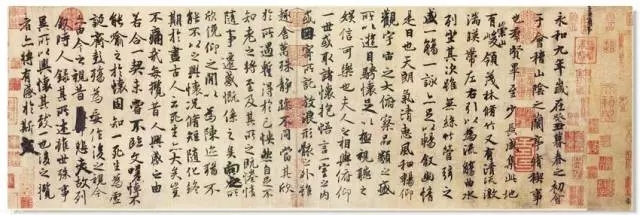 永和九年歲在癸丑暮春之初會
于會稽山陰之蘭亭脩禊事
也羣賢畢至少長咸集此地
有崇山峻領茂林脩竹又有清流激
湍暎帶左右引以為流觴曲水
列坐其次雖無絲竹管弦之
盛一觴一詠亦足以暢敘幽情
是日也天朗氣清惠風和暢仰
觀宇宙之大俯察品類之盛
所以遊目騁懷足以極視聽之
娛信可樂也夫人之相與俯仰
一世或取諸懷抱悟言一室之內
或因寄所託放浪形骸之外雖
趣舍萬殊靜躁不同當其欣
於所遇暫得於己怏然自足不
知老之將至及其所之既惓情
隨事遷感慨係之矣向之所
欣俛仰之閒以為陳迹猶不
能不以之興懷況脩短隨化終
期於盡古人云死生亦大矣豈
不痛哉每攬昔人興感之由
若合一契未嘗不臨文嗟悼不
能喻之於懷固知一死生為虛
誕齊彭殤為妄作後之視今
亦由今之視昔悲夫故列
敘時人錄其所述雖世殊事
異所以興懷其致一也後之攬
者亦將有感於斯